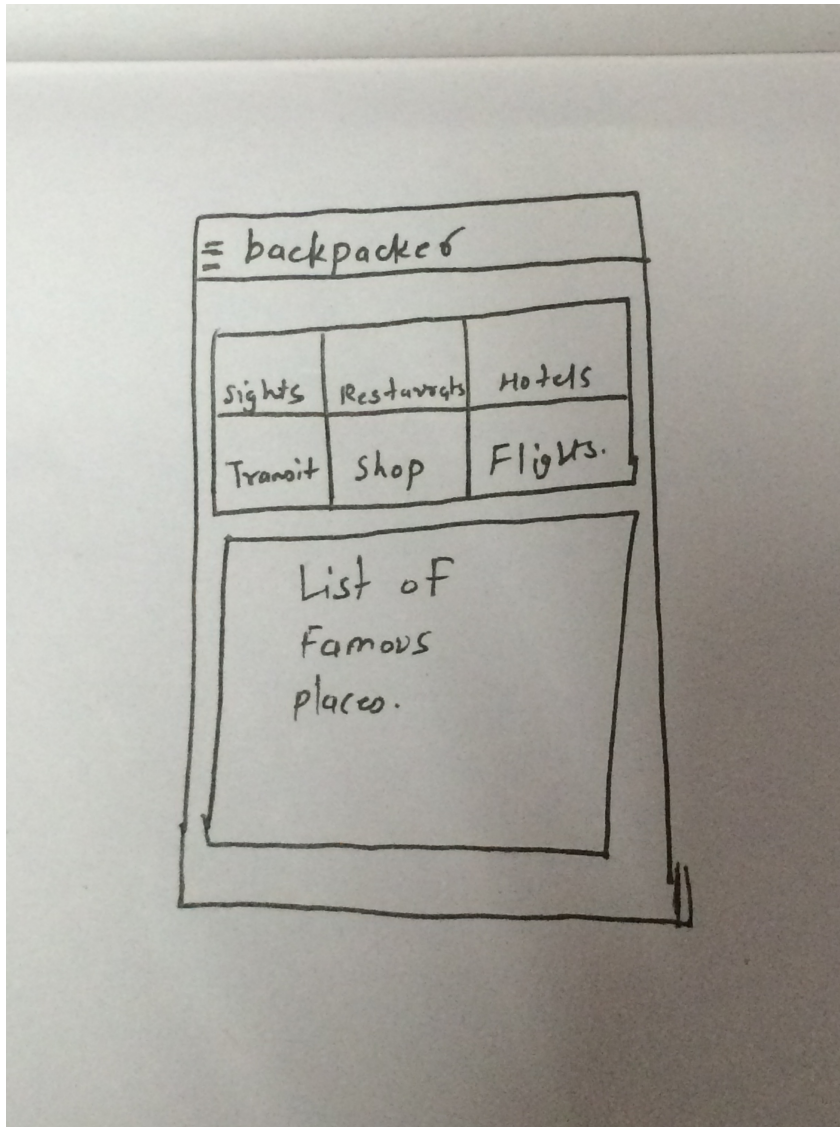 backpacker
Sights Restaurats Hotels
Transit Shop Flights.
List of
Famous
places.